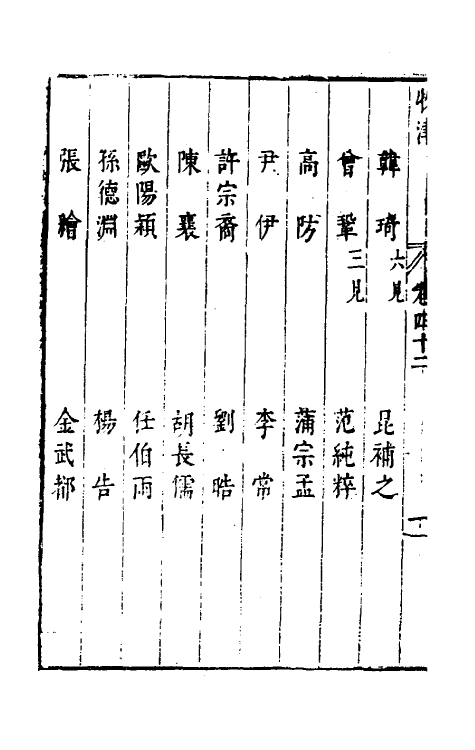 牧津
卷四十二
韓琦六見 晁補之
曾鞏三見 范純粹
高防 蒲宗孟
尹伊 李常
許宗裔 劉晧
陳襄 胡長儒
歐陽穎 任伯雨
孫德淵 楊告
張繪 金武都